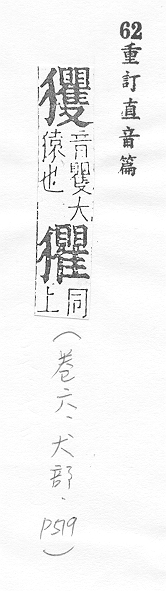 62重訂直音篇
玃音瞿大猿也㺢同上
(卷六·犬部·P579)